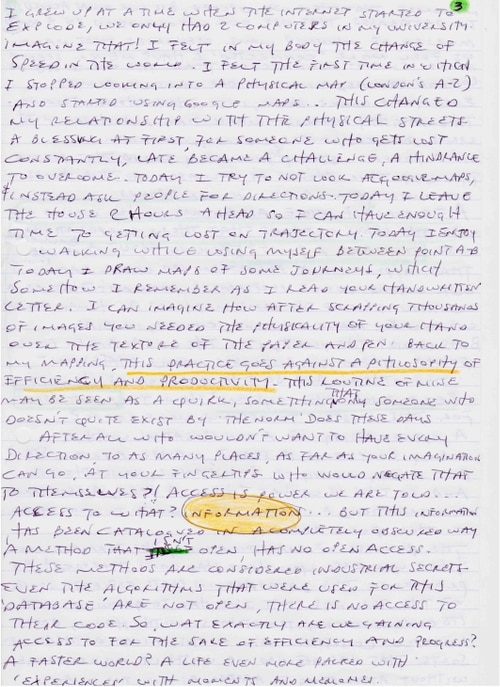 3
I GREW UP AT A TIME WHEN THE INTERNET STARTED TO
EXPLODE, WE ONLY HAD 2 COMPUTERS IN MY UNIVERSITY.
IMAGINE THAT! I FELT IN MY BODY THE CHANGE OF
SPEED IN THE WORLD. I FELT THE FIRST TIME IN WHICH
I STOPPED LOOKING INTO A PHYSICAL MAP (LONDON'S A-Z)
AND STARTED USING GOOGLE MAPS... THIS CHANGED
MY RELATIONSHIP WITH THE PHYSICAL STREETS.
A BLESSING AT FIRST, FOR SOMEONE WHO GETS LOST
CONSTANTLY, LATE BECAME A CHALLENGE, A HINDRANCE
TO OVERCOME. TODAY I TRY TO NOT LOOK AT GOOGLE MAPS,
INSTEAD ASK PEOPLE FOR DIRECTIONS. TODAY I LEAVE
THE HOUSE 2 HOURS AHEAD SO I CAN HAVE ENOUGH
TIME TO GETTING LOST ON TRAJECTORY. TODAY I ENJOY
WALKING WHILE LOSING MYSELF BETWEEN POINT A-B
TODAY I DRAW MAPS OF SOME JOURNEYS, WHICH
SOMEHOW I REMEMBER AS I READ YOUR HANDWRITTEN
LETTER. I CAN IMAGINE HOW AFTER SCRAPPING THOUSANDS
OF IMAGES YOU NEEDED THE PHYSICALITY OF YOUR HAND
OVER THE TEXTURE OF THE PAPER AND PEN. BACK TO
MY MAPPING, THIS PRACTICE GOES AGAINST A PHILOSOPHY OF
EFFICIENCY AND PRODUCTIVITY. THIS ROUTINE OF MINE
MAY BE SEEN AS A QUIRK, SOMETHING THAT ONLY SOMEONE WHO
DOESN'T QUITE EXIST BY THE NORM DOES THESE DAYS
AFTER ALL WHO WOULDN'T WANT TO HAVE EVERY
DIRECTION, TO AS MANY PLACES, AS FAR AS YOUR IMAGINATION
CAN GO, AT YOUR FINGERTIPS WHO WOULD NEGATE THAT
TO THEMSELVES?! ACCESS IS POWER WE ARE TOLD....
ACCESS TO WHAT? INFORMATION... BUT THIS INFORMATION
HAS BEEN CATALOGUED IN A COMPLETELY OBSCURED WAY
A METHOD THAT ISN'T OPEN, HAS NO OPEN ACCESS.
THESE METHODS ARE CONSIDERED INDUSTRIAL SECRETS
EVEN THE ALGORITHMS THAT WERE USED FOR THIS
'DATABASE' ARE NOT OPEN, THERE IS NO ACCESS TO
THEIR CODE. SO, WAT EXACTLY ARE WE GAINING
ACCESS TO FOR THE SAKE OF EFFICIENCY AND PROGRESS?
A FASTER WORLD? A LIFE EVEN MORE PACKED WITH
'EXPERIENCES' WITH MOMENTS AND MEMORIES.